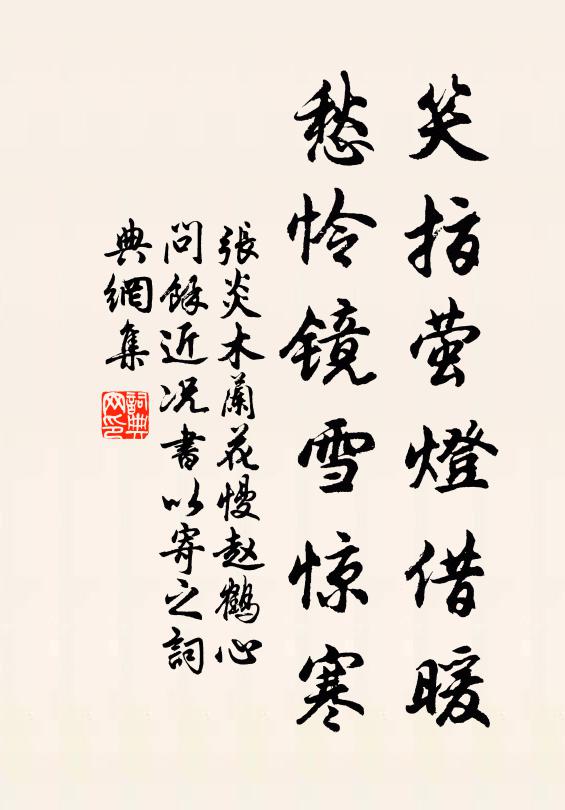 笑指萤燈借暖
愁怜镜雪惊寒
張炎木蘭花慢赵鶴心
問餘近况書以寄之詞
典網集
詞典
网印